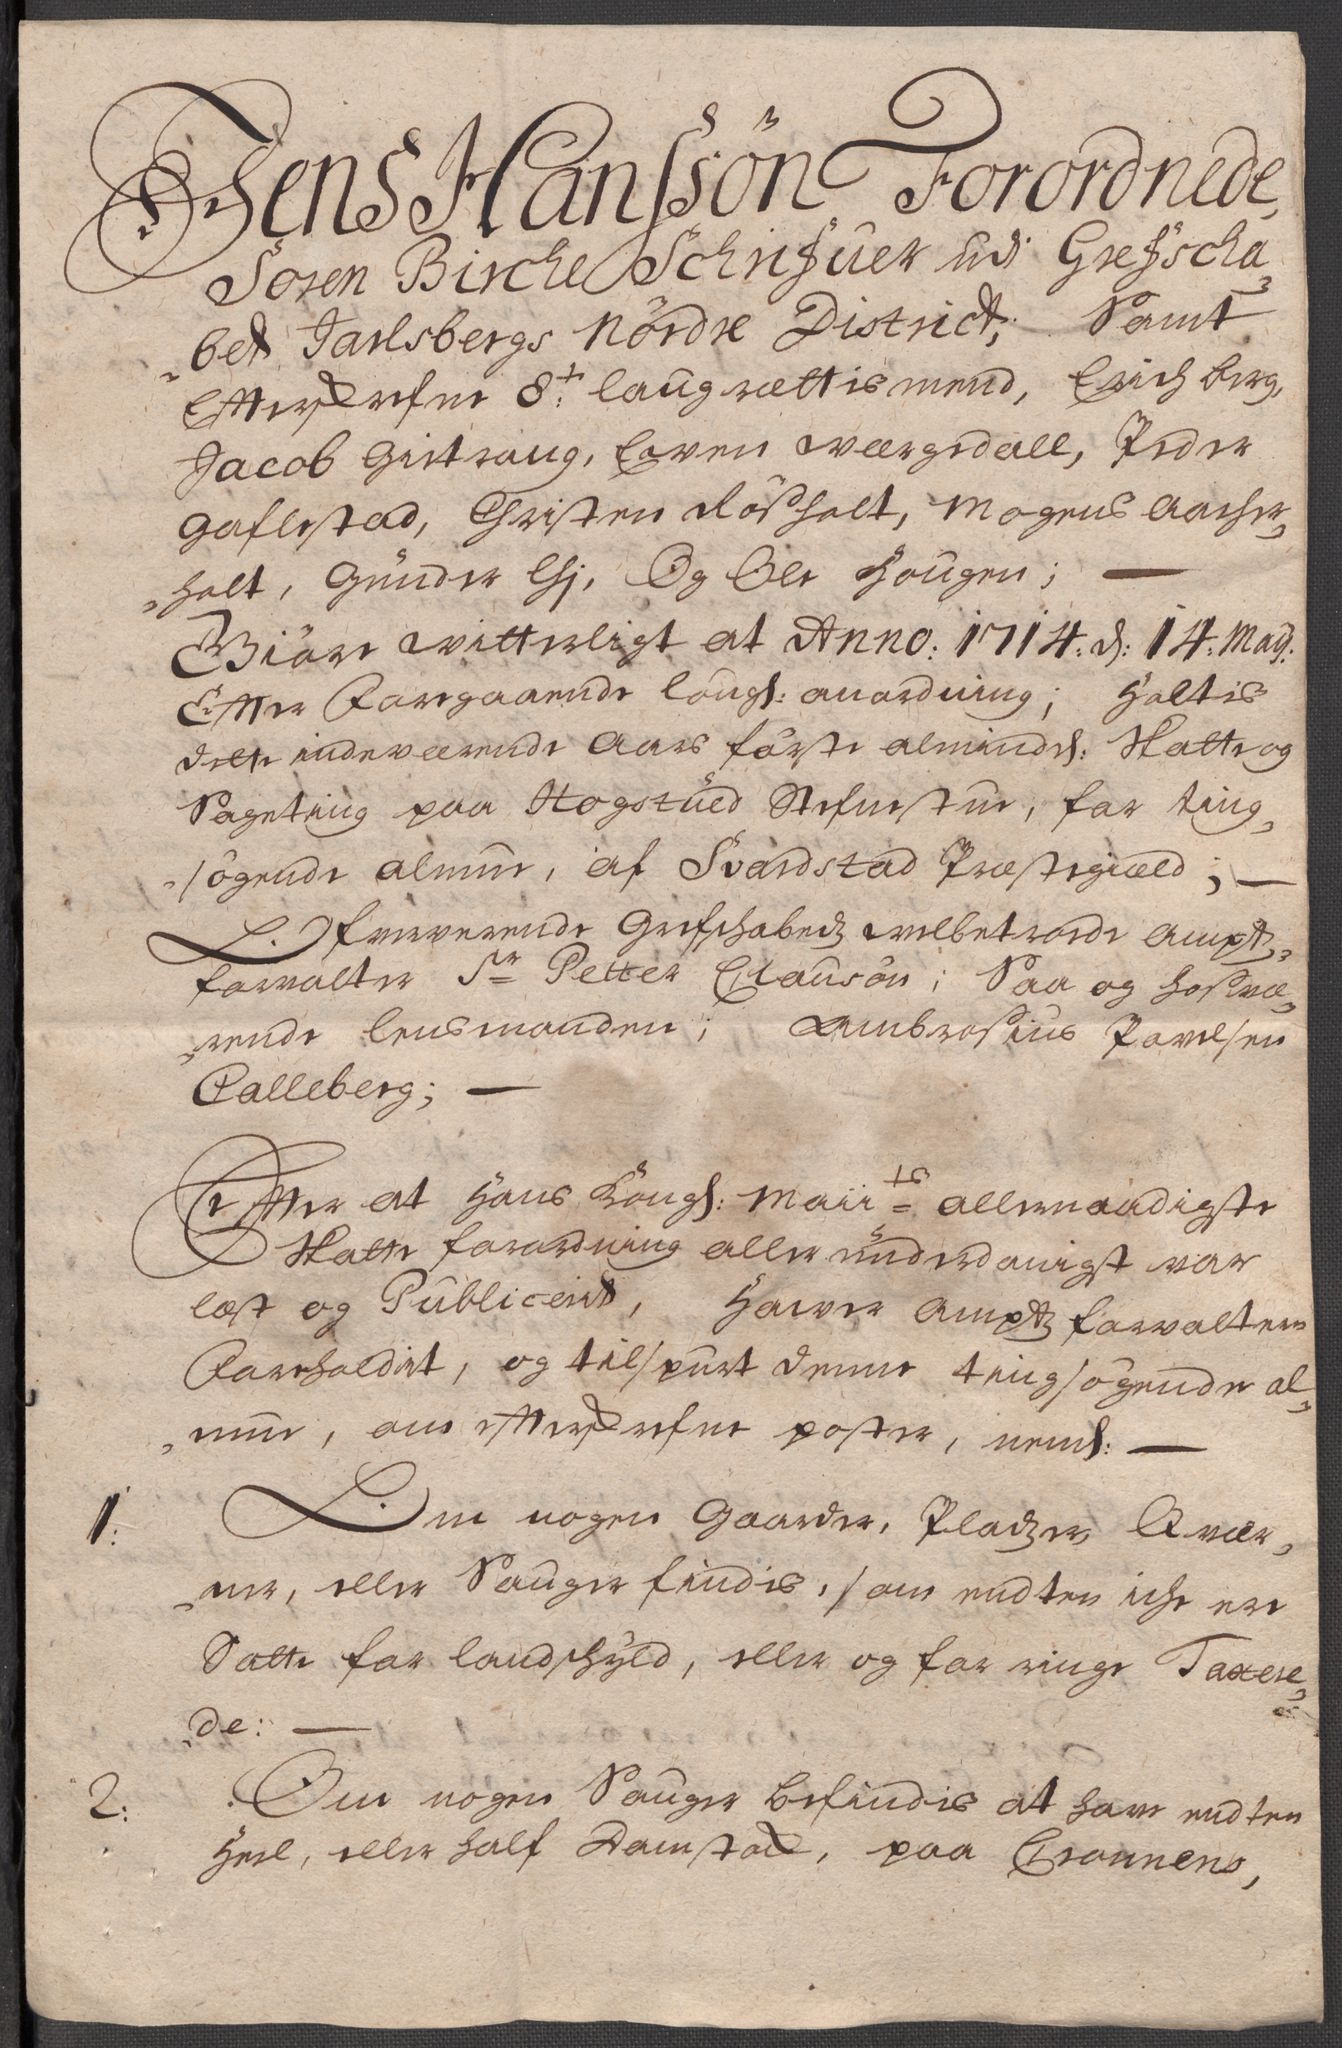 Jens Hansøn Forordnede
Soren Birche Schrifuer udi Grefscha,,
,,bet Jarlsbergs Nordre District; Samt
Effterschrefne 8t: laugrættismend, Erich berg,
Jacob Gietrang, Even Wærgedall, Peder
Gaflestad, Christen Røsholt, Mogens Aacher,,
,,holt, Gunder Eh, Og Ole Hougen; —
Giöre witterligt at Anno: 1714. d: 14. Maij:
Efter Foregaaende lougl: anordning; Holtis
dette indeværende Aars förste almindel: Skatte og
Sageting paa Hogstued Stefnestue, for ting,,
,,søgende almue, af Svardstad Præstegiæld; —
Ofverværende Grefschabedz velbetroede Ampts,,
forvalter Sr Petter Clausön; Saa og hosvæ,,
,,rende lensmanden; Ambrosius Povelsen
Falleberg; —
Efter at Hans Kongl: Maiits allernaadigste
Skatte forordning allerunderdanigst var
læst og Publicerit, Hawer Ampts forvalteren
Foreholdet, og tilspurt denne tingsøgende al,,
,,mue, om effterschrefne poster, neml: —
1: Om nogen Gaarder, Pladzer, Qvær,,
,,ner, eller Sauger findis, som endten iche ere
Satte for landschyld, eller og for ringe Taxere,,
,,de: —
2: Om nogen Sauger befindis at have endten
Heel, eller half Damstock, paa Cronnens,